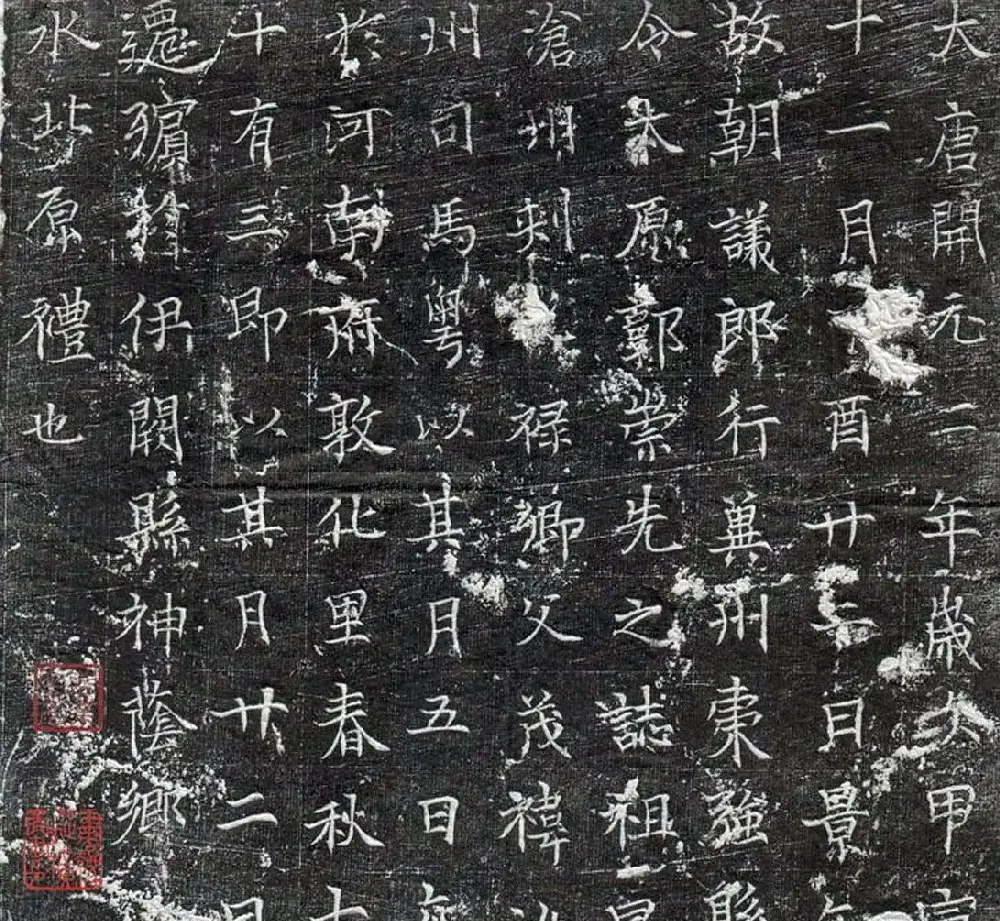 大唐開元二年歲次甲寅
十一月酉廿二日景
故朝議郎行冀州棗強縣
令太原郭崇先之誌祖
滄州刺祿鄉父茂禕
州司馬粵以其月五日
於河南府敦化里春秋七
十有三即以其月廿二日
遷殯伊闕縣神蔭鄉
水北原禮也